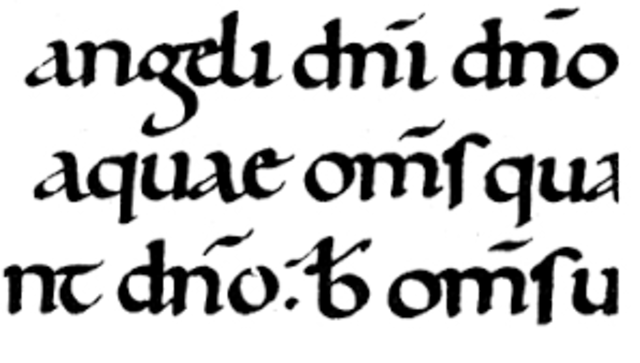 angeli dn̄i dn̄o
aquae om̄ſ qua
nt dn̄o: ƀ om̄ſ u